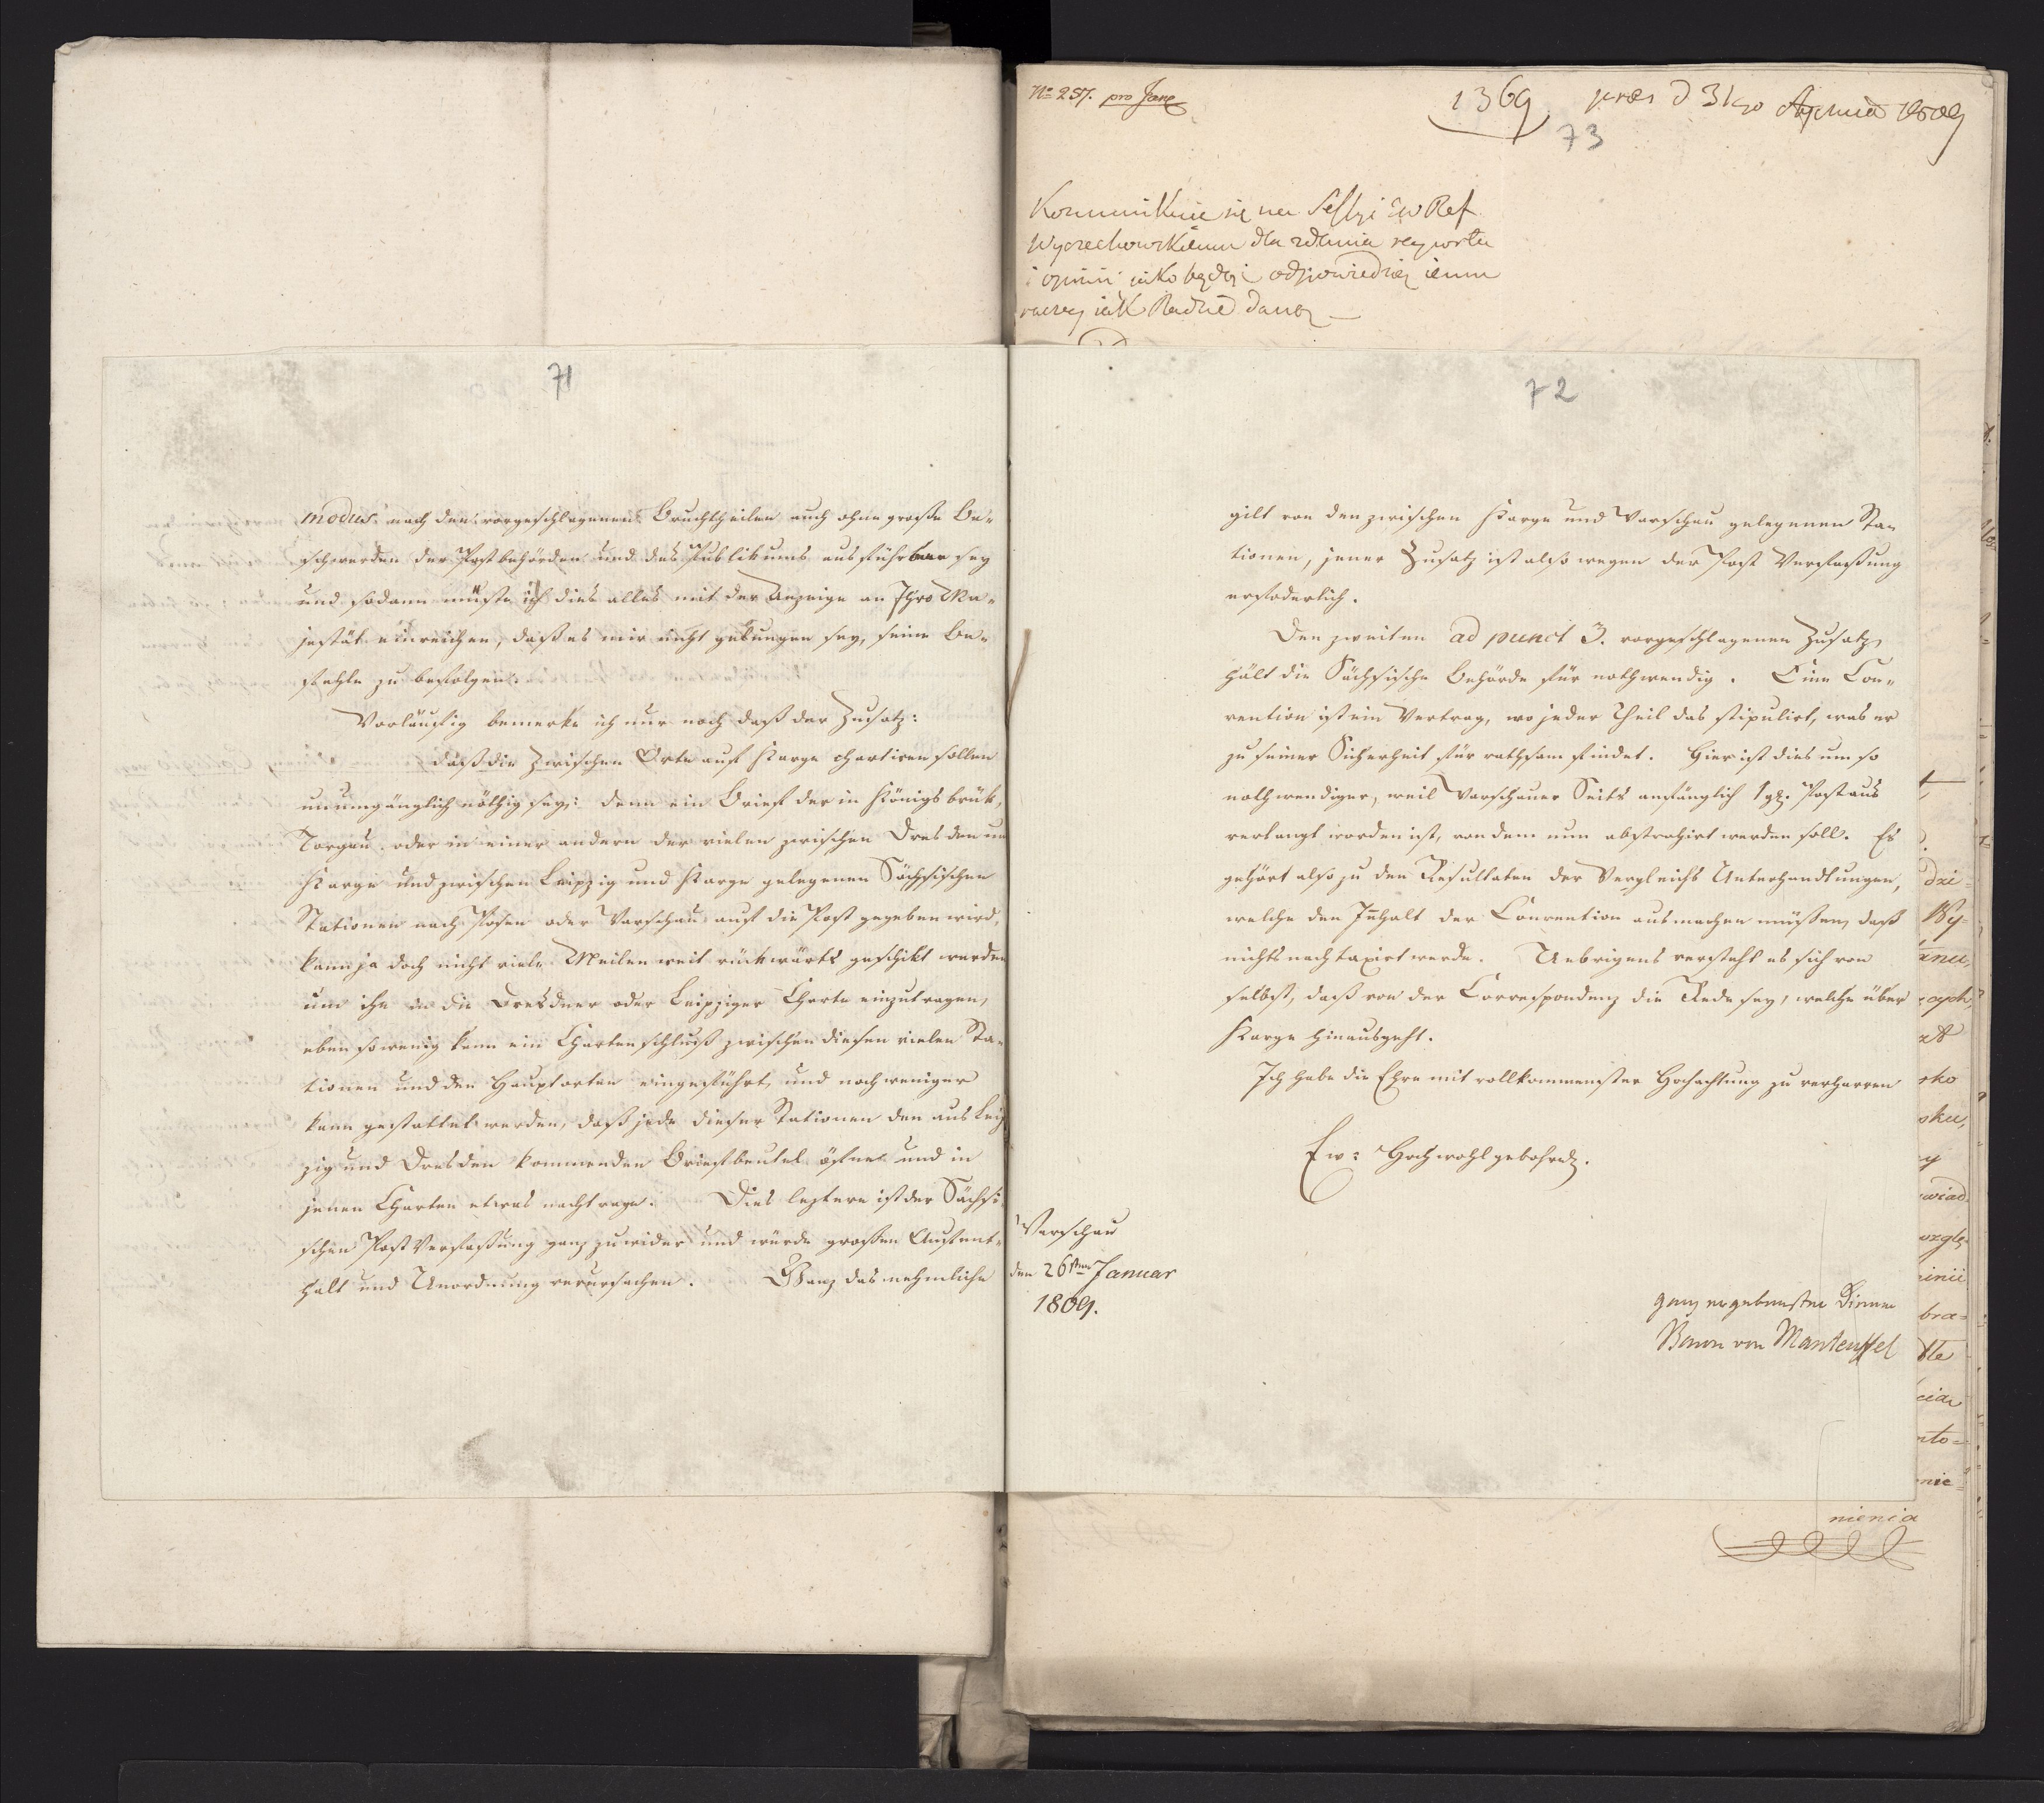 71
modus nach den vorgeschlagenen Bruchtheilen auch ohne große Be-
schwerden der Postbehörden und des Publikums ausführbar sey
und sodann müßte ich dies alles mit der Anzeige an Ihro Ma-
jestät einreichen, daß es mir nicht gelungen sey, seine Be-
fehle zu befolgen.
Vorläufig bemerke ich nur noch daß der Zusatz:
daß die Zwischen Orte auf Karge chartiren sollen
unumgänglich nöthig sey: denn ein Brief der in Königsbrük,
Torgau oder in einer andern der vielen zwischen Dresden un
Karge und zwischen Leipzig und Karge gelegenen Sächsischen
Stationen nach Posen oder Warschau auf die Post gegeben wird,
kann ja doch nicht viele Meilen weit rückwärts geschikt werden
um ihn in die Dresdner oder Leipziger Charte einzutragen,
eben so wenig kann ein Chartenschluß zwischen diesen vielen Sta-
tionen und den Hauptorten eingeführt, und noch weniger
kann gestattet werden, daß jede dieser Stationen den aus Leip
zig und Dresden kommenden Briefbeutel öfnet und in
jenen Charten etwas nachtrage. Dies leztere ist der Sächsi
schen Post Verfaßung ganz zuwider und würde großen Aufent-
halt und Unordnung verursachen. Ganz das nehmliche
No 257. pro Jan
1369 præs d 31go Stycznia 1809
73
Kommunikuie się na Sessyi JW Ref
Wyczechowskiemu dla zdania raportu
i opinii jako będącej odpowiedzią jemu
raczej jak Radzie daną
72
gilt von den zwischen Karge und Warschau gelegenen Sta-
tionen, jener Zusatz ist also wegen der Post Verfaßung
erfoderlich.
Den zweiten ad punct 3. vorgeschlagenen Zusatz
hält die Sächsische Behörde für nothwendig. Eine Con-
vention ist ein Vertrag, wo jeder Theil das stipulirt, was er
zu seiner Sicherheit für rathsam findet. Hier ist dies um so
nothwendiger, weil Warschauer Seits anfänglich 1 gr. Postaus
verlangt worden ist, von dem nun abstrahirt werden soll. Es
gehört also zu den Resultaten der Vergleichs Unterhandlungen,
welche den Inhalt der Convention ausmachen müßen, daß
nichts nachtaxirt werde. Uebrigens versteht es sich von
selbst, daß von der Correspondenz die Rede sey, welche über
Karge hinausgeht.
Ich habe die Ehre mit vollkommenster Hochachtung zu verharren
Ew: Hochwohlgebohrn.
Warschau
den 26sten Januar
1809.
ganz ergebenster Diener
Baron von Manteuffel
nienia